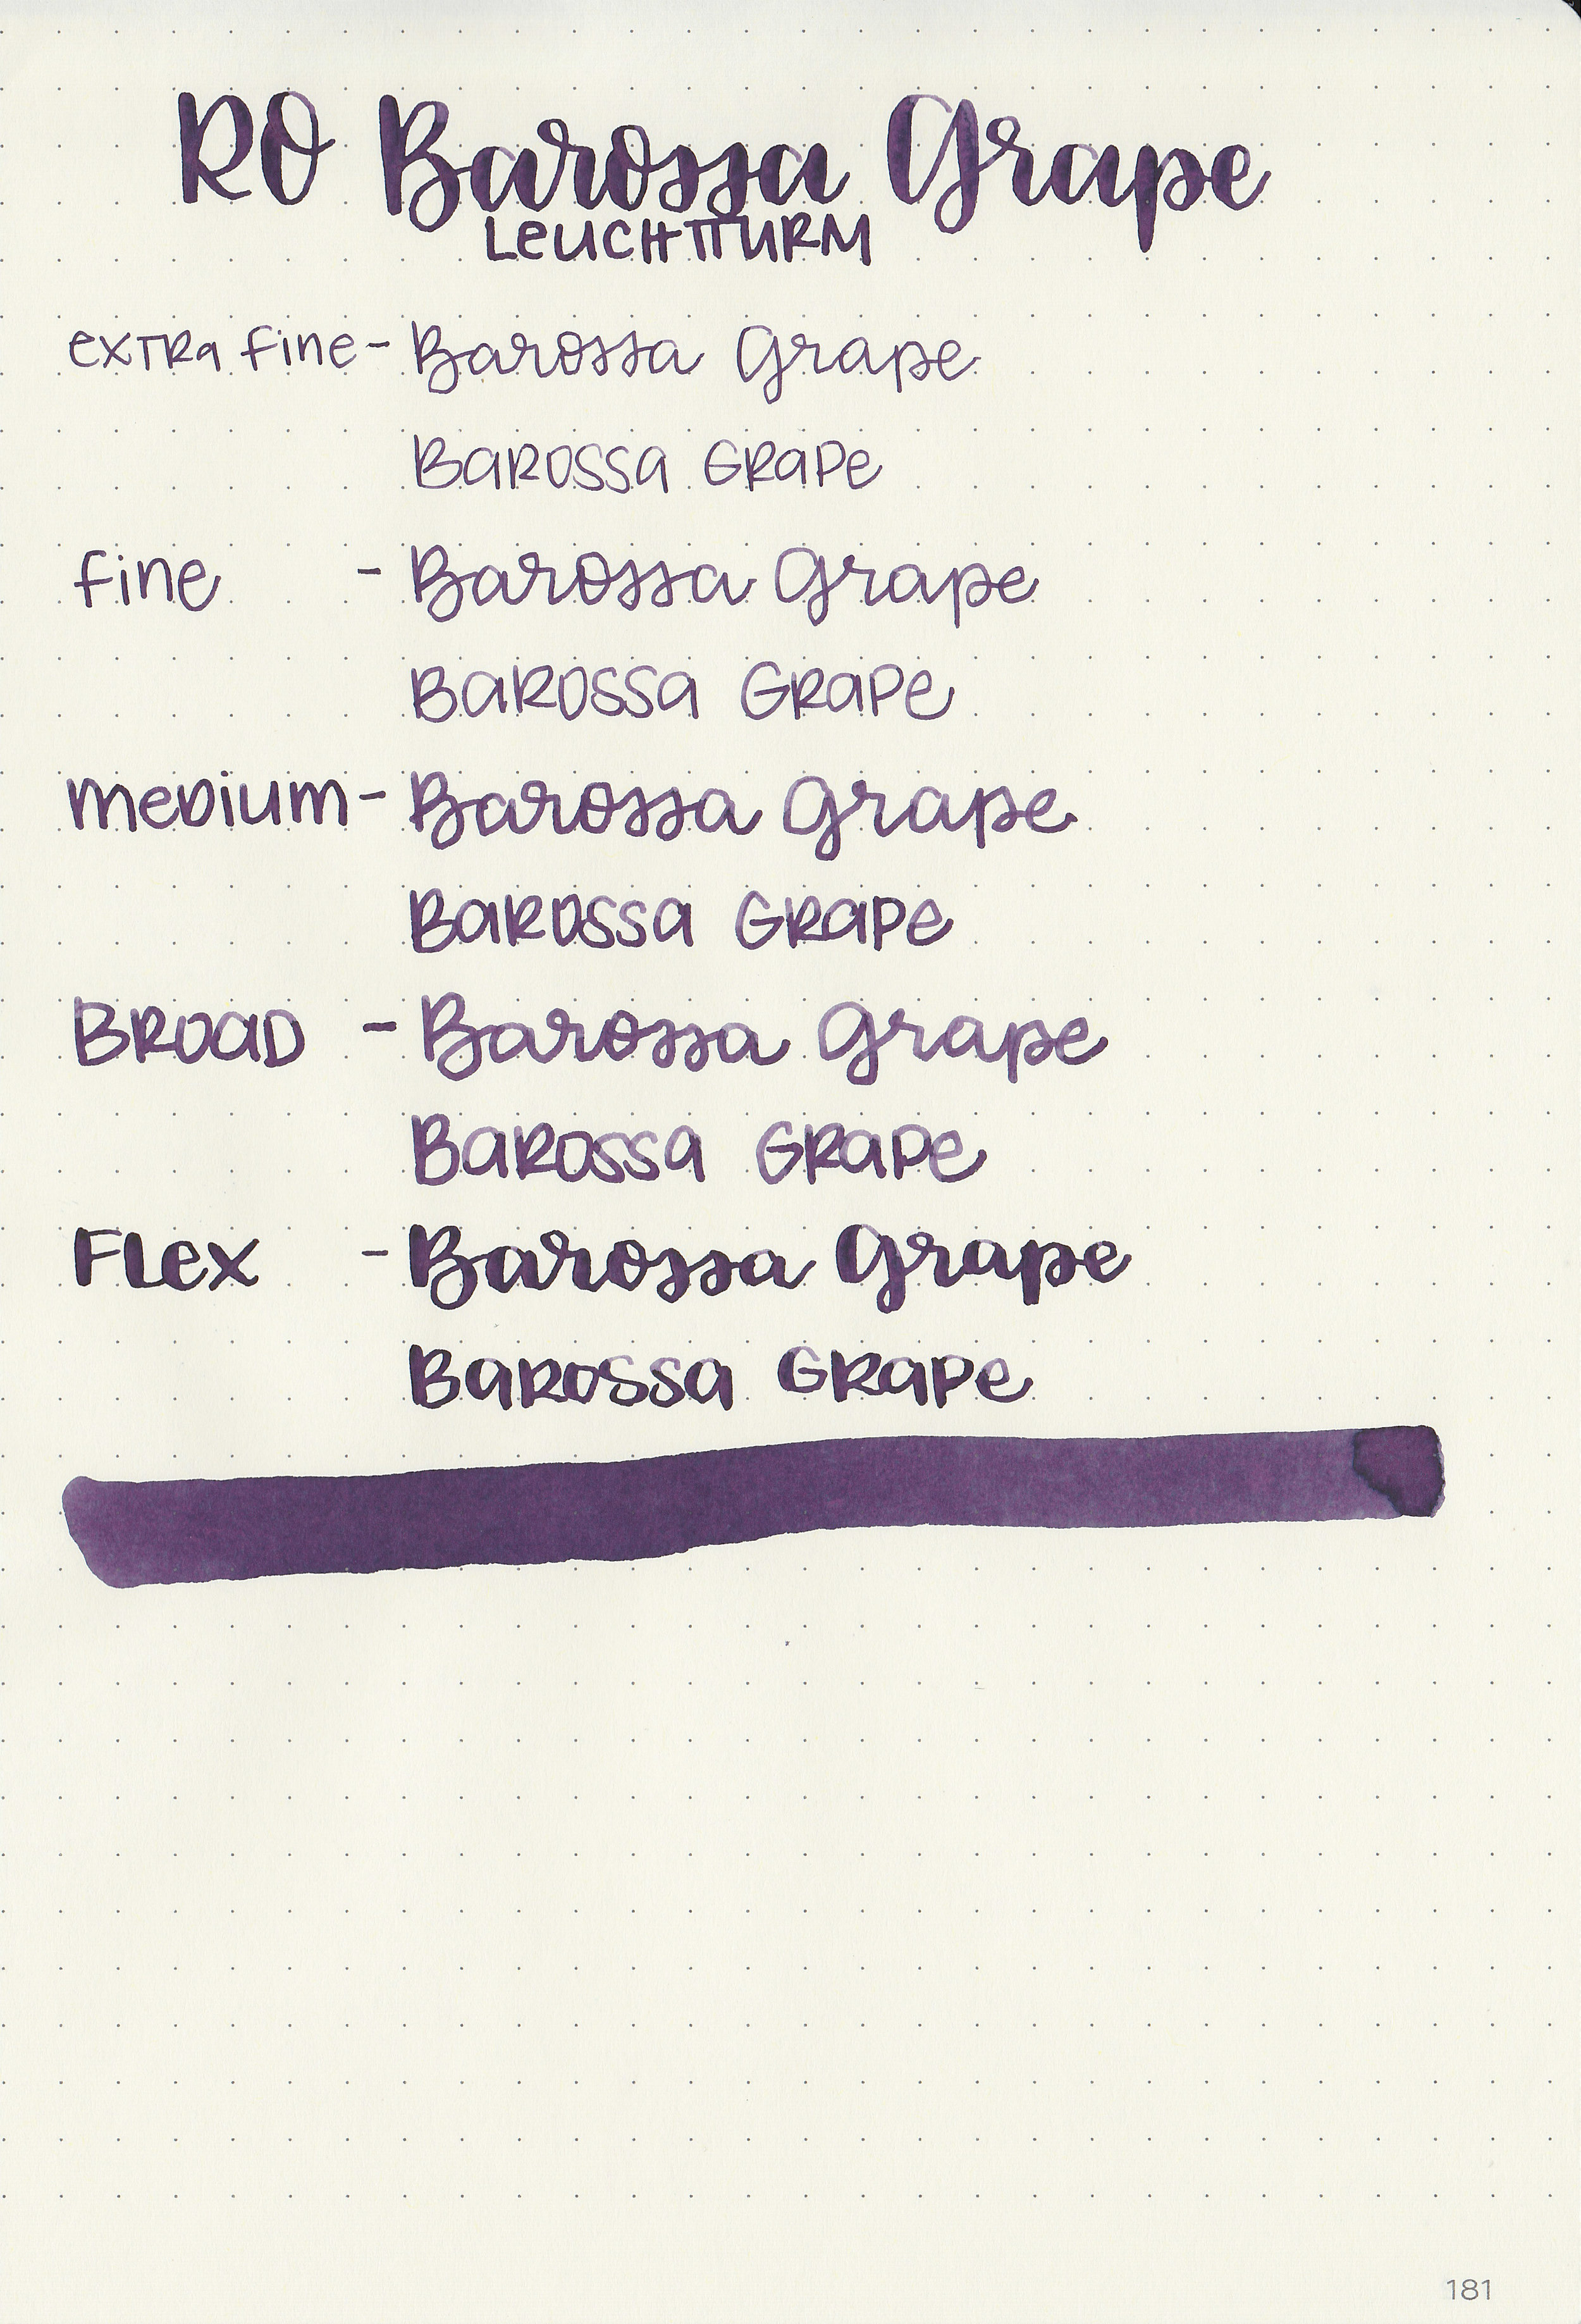 RO Barossa Grape
LeUCHTTURM
exTRa fine - Barossa Grape
BaROSSa GRaPe
fine - Barossa Grape
BaROSSa GRaPe
meDium - Barossa Grape
BaROSSa GRaPe
BROaD - Barossa Grape
BaROSSa GRaPe
FLex - Barossa Grape
BaROSSa GRaPe
181